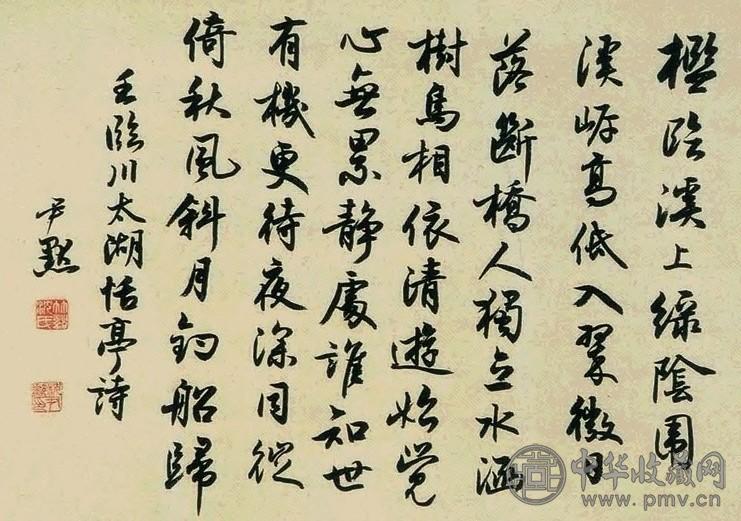 檻臨溪上綠陰圍
溪岸高低入翠微日
落斷橋人獨立水涵
樹鳥相依清遊始覺
心無累靜處誰知世
有機更待夜深同徙
倚秋風斜月釣船歸
王臨川太湖恬亭詩
尹默
中华收藏网
www.pmv.cn